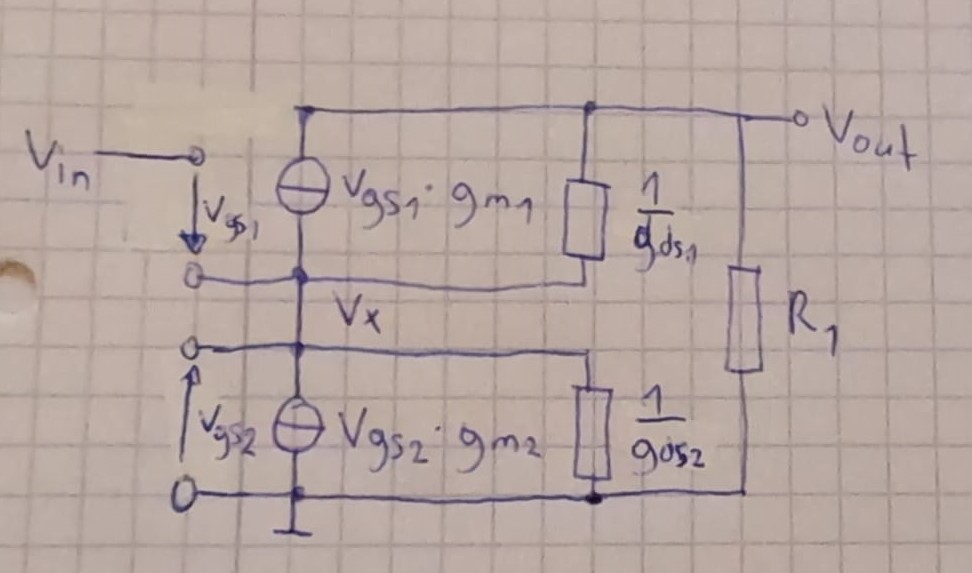 Vin
Vgs1
Vgs1 · gm1
1/gds1
Vout
Vx
R1
Vgs2
Vgs2 · gm2
1/gds2